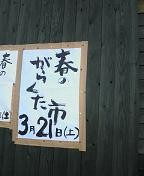 春の
がらくた市
3月21日(土)
春の